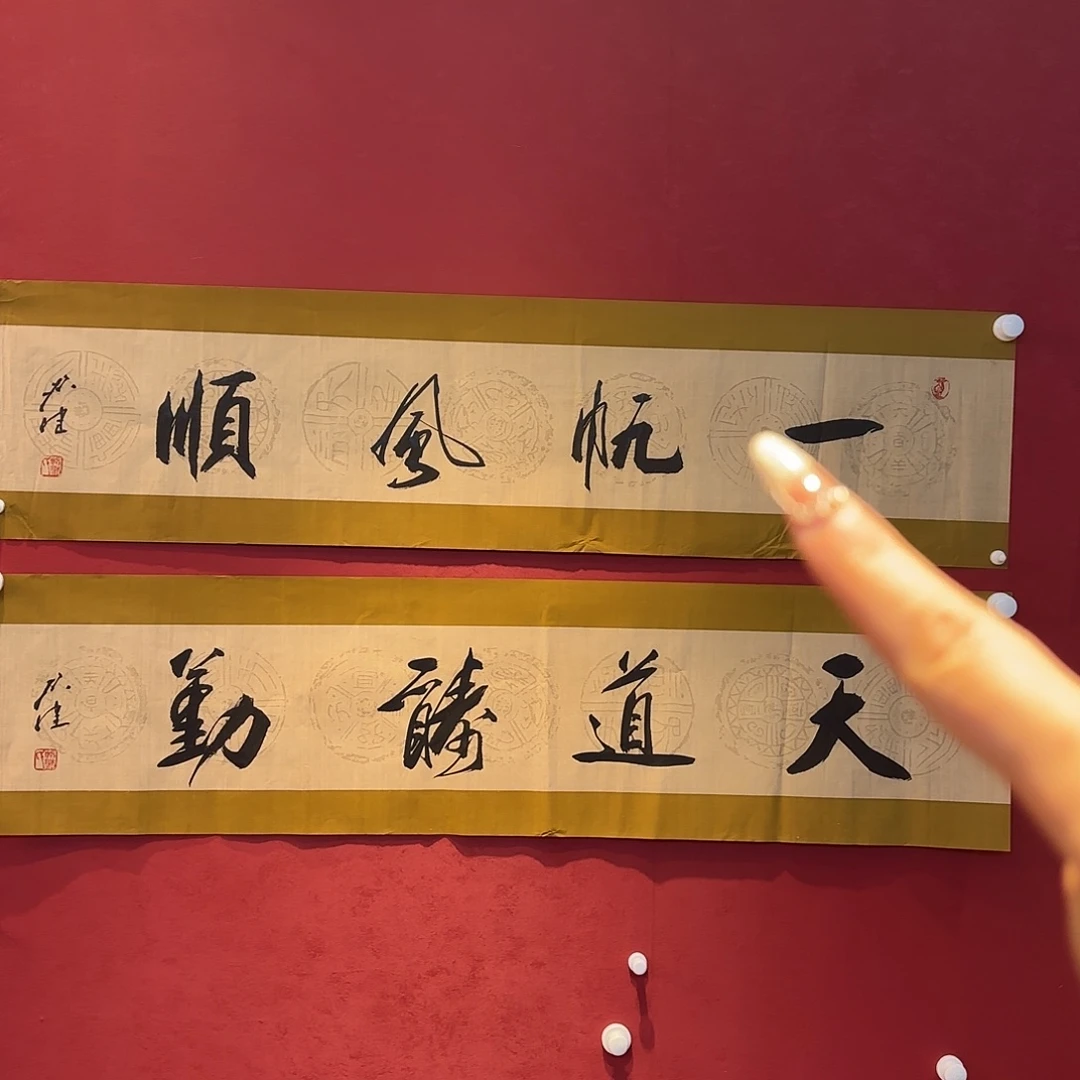 一帆風順
天道醻勤